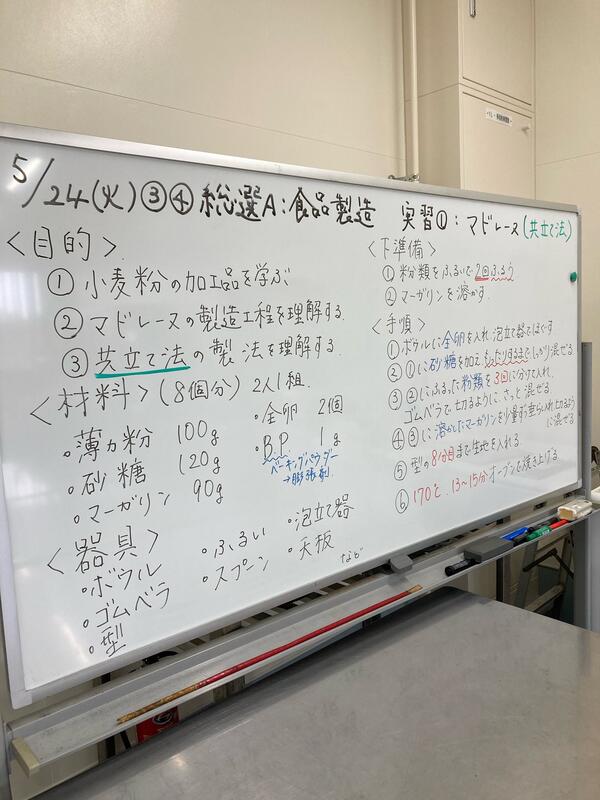 5/24(火)③④ 総選A:食品製造 実習①:マドレーヌ(共立て法)
<目的>
①小麦粉の加工品を学ぶ
②マドレーヌの製造工程を理解する。
③共立て法の製法を理解する。
<材料>(8個分) 2人1組
・薄力粉 100g
・砂糖 120g
・マーガリン 90g
・全卵 2個
・BP 1g
ベーキングパウダー
→膨張剤
<器具>
・ボウル
・ゴムベラ
・型
・ふるい
・スプーン
・泡立て器
・天板
など
<下準備>
①粉類をふるいで2回ふるう
②マーガリンを溶かす。
<手順>
①ボウルに全卵を入れ泡立て器でほぐす
②①に砂糖を加えもったりするまでしっかり混ぜる
③②にふるった粉類を3回に分けて入れ、
ゴムベラで切るように、さっと混ぜる
④③に溶かしたマーガリンを少量ずつ垂らし入れ切るように混ぜる
⑤型の8分目まで生地を入れる。
⑥170℃、13~15分オーブンで焼き上げる。